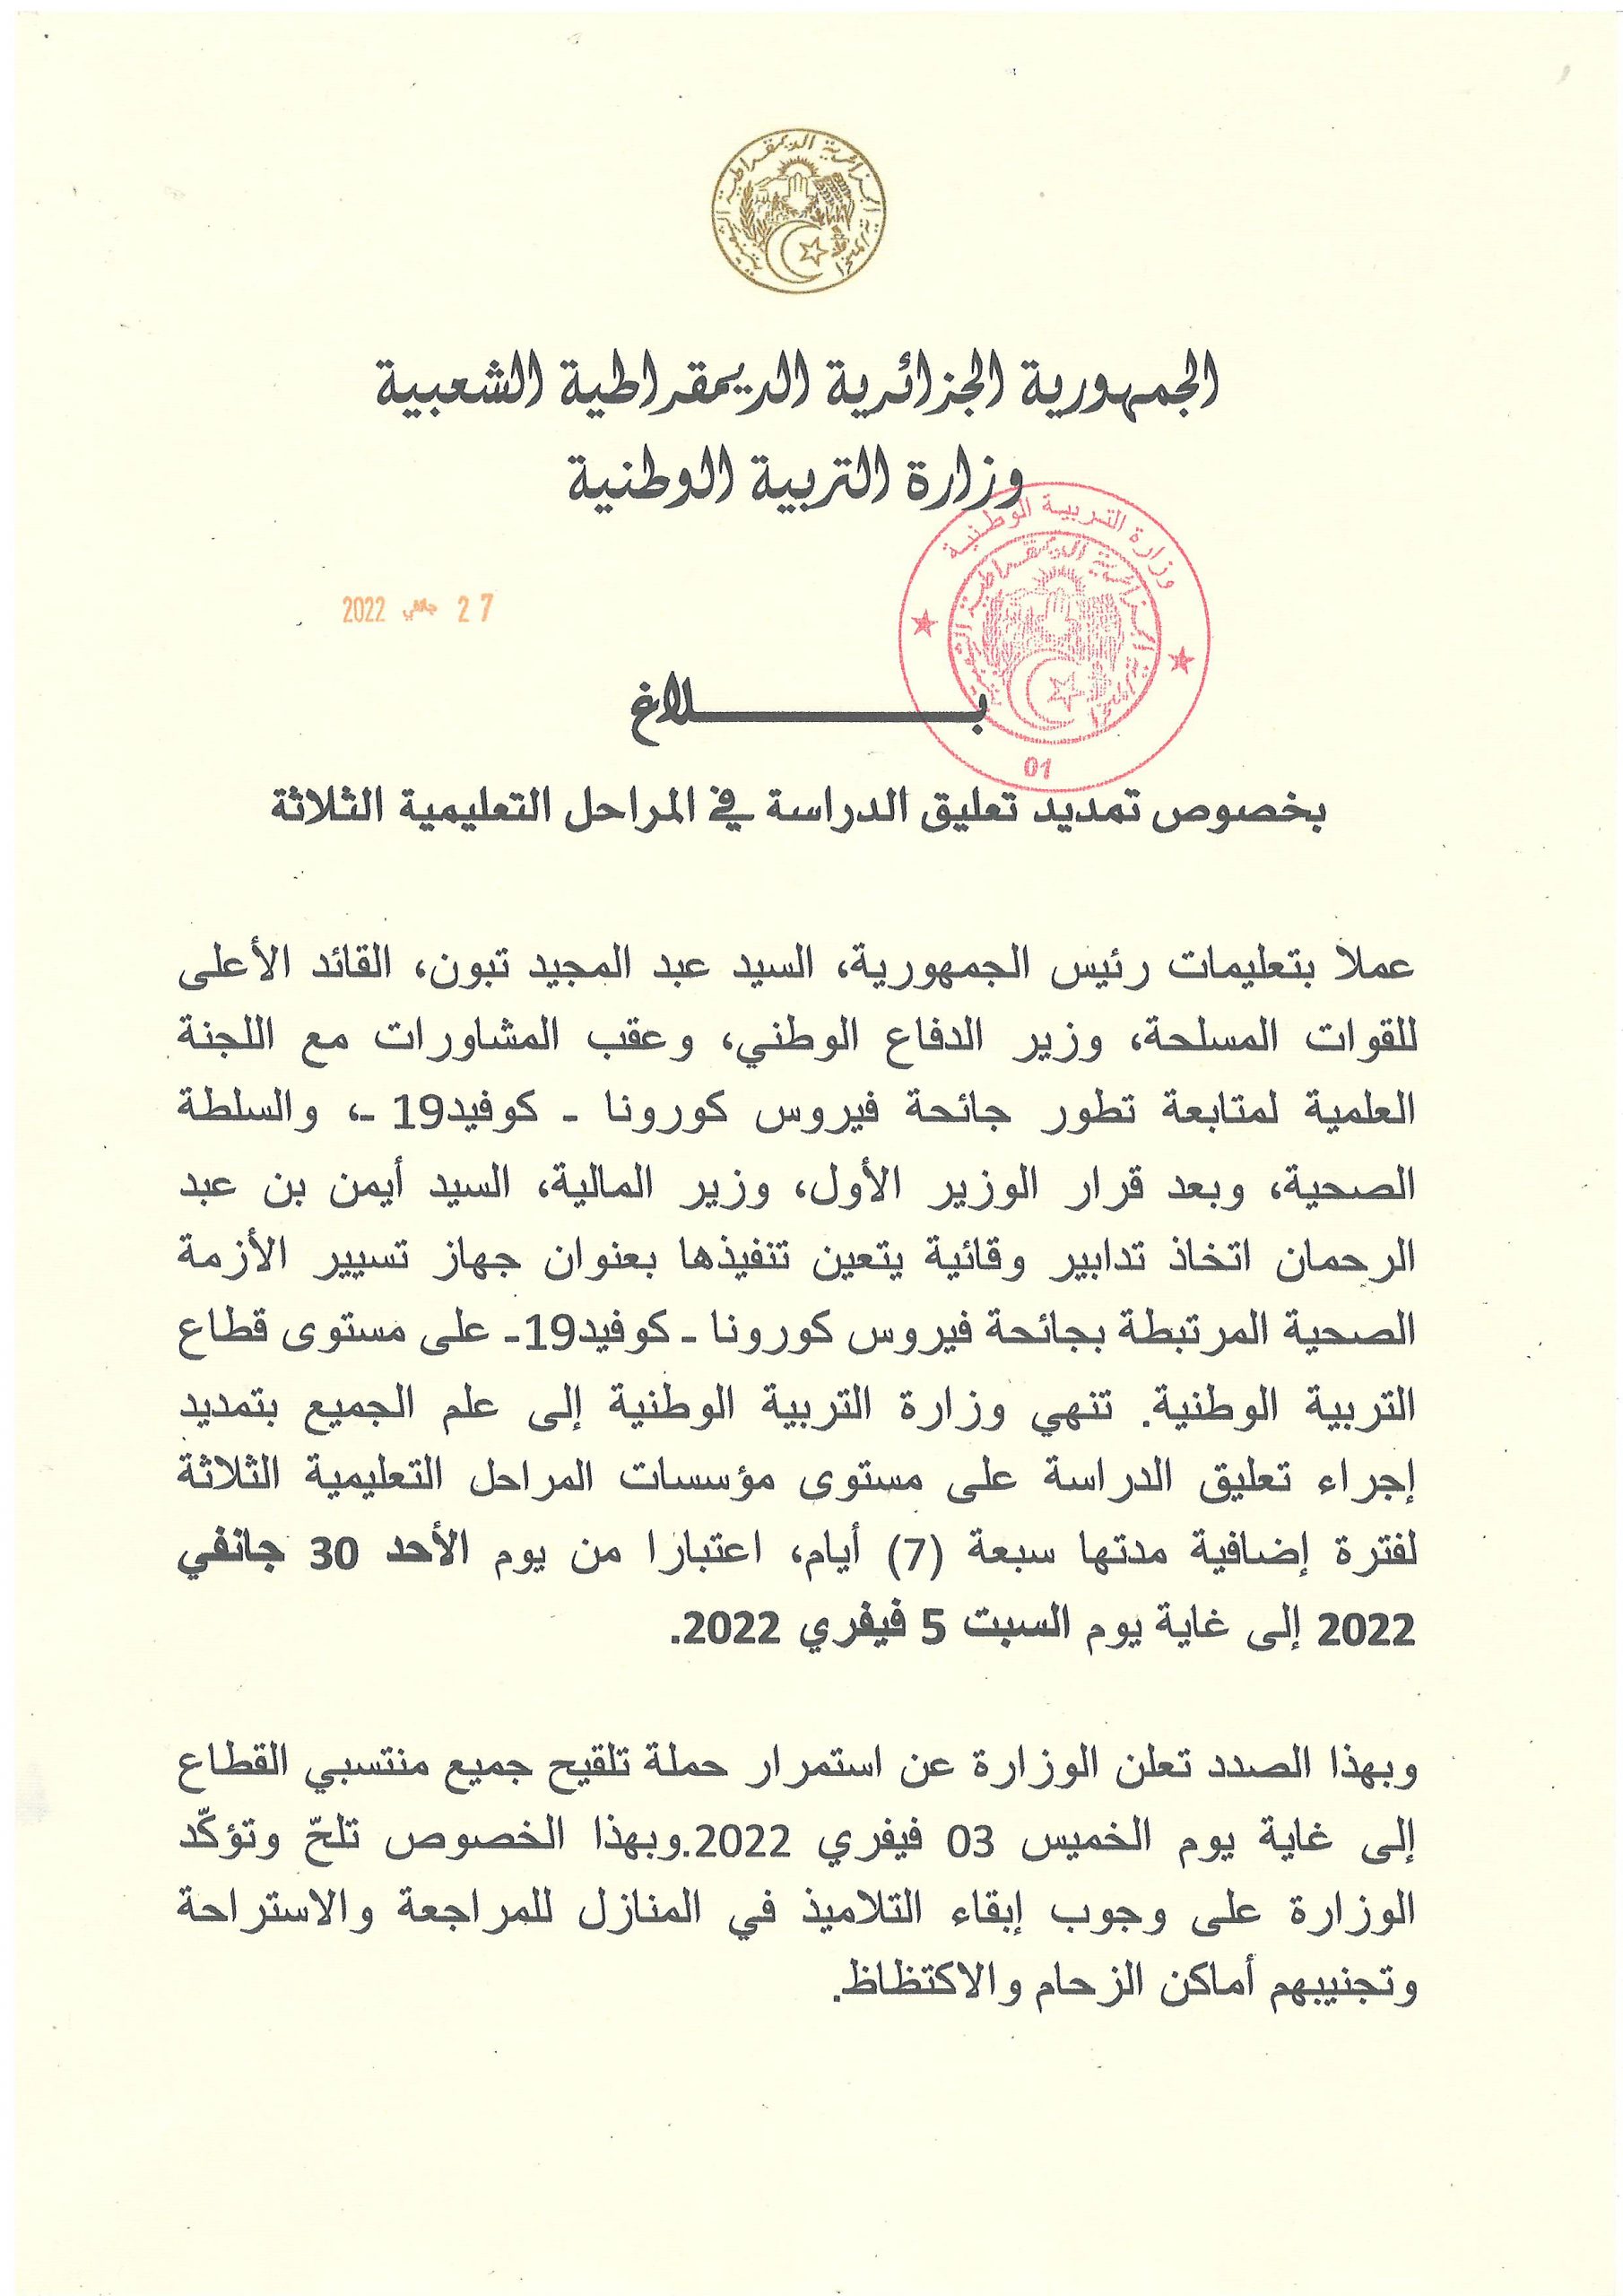 الجمهورية الجزائرية الديمقراطية الشعبية
الجمهورية الجزائرية الديمقراطية الشعبية
وزارة التربية الوطنية
وزارة التربية الوطنية
الجمهورية الجزائرية الديمقراطية الشعبية
01
27 جانفي 2022
بـــــــــلاغ
بخصوص تمديد تعليق الدراسة في المراحل التعليمية الثلاثة
عملا بتعليمات رئيس الجمهورية، السيد عبد المجيد تبون، القائد الأعلى
للقوات المسلحة، وزير الدفاع الوطني، وعقب المشاورات مع اللجنة
العلمية لمتابعة تطور جائحة فيروس كورونا ـ كوفيد19 ـ، والسلطة
الصحية، وبعد قرار الوزير الأول، وزير المالية، السيد أيمن بن عبد
الرحمان اتخاذ تدابير وقائية يتعين تنفيذها بعنوان جهاز تسيير الأزمة
الصحية المرتبطة بجائحة فيروس كورونا ـ كوفيد19ـ على مستوى قطاع
التربية الوطنية. تنهي وزارة التربية الوطنية إلى علم الجميع بتمديد
إجراء تعليق الدراسة على مستوى مؤسسات المراحل التعليمية الثلاثة
لفترة إضافية مدتها سبعة (7) أيام، اعتبارا من يوم الأحد 30 جانفي
2022 إلى غاية يوم السبت 5 فيفري 2022.
وبهذا الصدد تعلن الوزارة عن استمرار حملة تلقيح جميع منتسبي القطاع
إلى غاية يوم الخميس 03 فيفري 2022.وبهذا الخصوص تلحّ وتؤكّد
الوزارة على وجوب إبقاء التلاميذ في المنازل للمراجعة والاستراحة
وتجنيبهم أماكن الزحام والاكتظاظ.